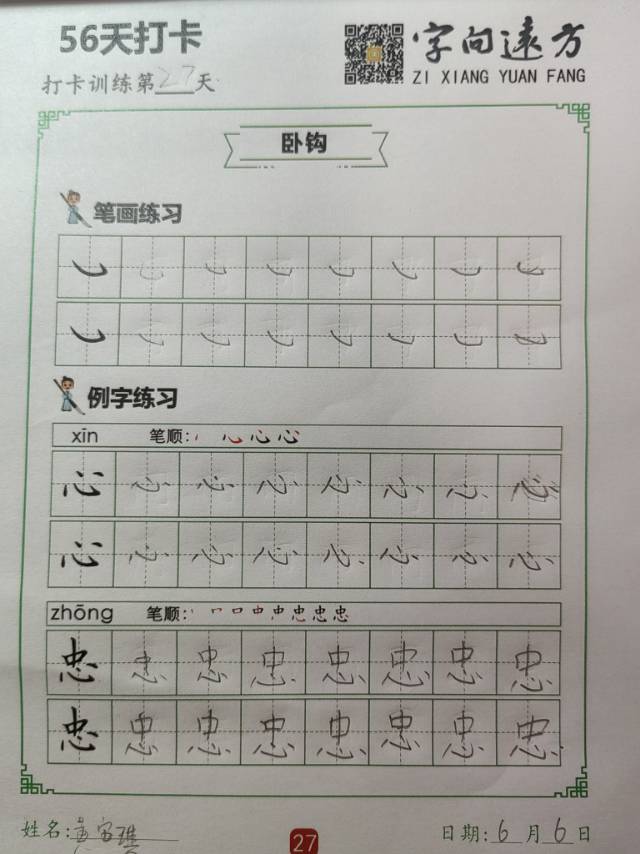 56天打卡
字向远方
打卡训练第27天
ZI XIANG YUAN FANG
卧钩
笔画练习
例字练习
xīn 笔顺:
心 心 心 心 心 心 心 心
心 心 心 心 心 心 心 心
zhōng 笔顺:
忠 忠 忠 忠 忠 忠 忠 忠
忠 忠 忠 忠 忠 忠 忠 忠
姓名:
27
日期: 6 月 6 日